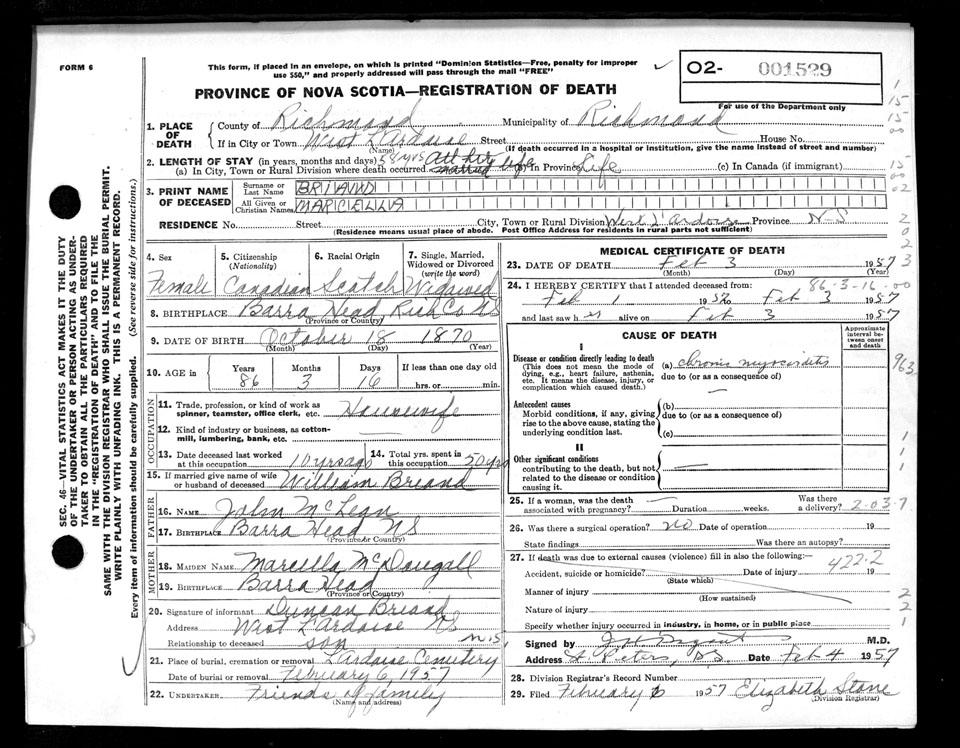 FORM 6
This form, if placed in an envelope, on which is printed "Dominion Statistics—Free, penalty for improper
use $50," and properly addressed will pass through the mail "FREE"
O2- 001529
For use of the Department only
PROVINCE OF NOVA SCOTIA—REGISTRATION OF DEATH
SEC. 46—VITAL STATISTICS ACT MAKES IT THE DUTY
OF THE UNDERTAKER OR PERSON ACTING AS UNDER-
TAKER TO OBTAIN ALL THE PARTICULARS REQUIRED
IN THE "REGISTRATION OF DEATH" AND TO FILE THE
SAME WITH THE DIVISION REGISTRAR WHO SHALL ISSUE THE BURIAL PERMIT.
WRITE PLAINLY WITH UNFADING INK. THIS IS A PERMANENT RECORD.
Every item of information should be carefully supplied. (See reverse side for instructions.)
1. PLACE OF DEATH
County of Richmond Municipality of Richmond
If in City or Town West L'Ardoise Street House No.
(Name) (If death occurred in a hospital or institution, give the name instead of street and number)
2. LENGTH OF STAY (in years, months and days) 58 yrs All her life
(a) In City, Town or Rural Division where death occurred married (b) In Province Life (c) In Canada (if immigrant)
3. PRINT NAME OF DECEASED
Surname or Last Name BRIAND
All Given or Christian Names MARCELLA
RESIDENCE No. Street City, Town or Rural Division West L'Ardoise Province N-S
(Residence means usual place of abode. Post Office Address for residents in rural parts not sufficient)
4. Sex 5. Citizenship (Nationality) 6. Racial Origin 7. Single, Married, Widowed or Divorced (write the word)
Female Canadian Scotch Widowed
8. BIRTHPLACE Barra Head Rich Co NS
(Province or Country)
9. DATE OF BIRTH October 18 1870
(Month) (Day) (Year)
10. AGE in Years Months Days If less than one day old
86 3 16 hrs. or min.
OCCUPATION
11. Trade, profession, or kind of work as spinner, teamster, office clerk, etc. Housewife
12. Kind of industry or business, as cotton-mill, lumbering, bank, etc.
13. Date deceased last worked at this occupation 10 yrs ago 14. Total yrs. spent in this occupation 50 yrs
15. If married give name of wife or husband of deceased William Briand
FATHER
16. NAME John McLean
17. BIRTHPLACE Barra Head NS
(Province or Country)
MOTHER
18. MAIDEN NAME Marcella McDougall
19. BIRTHPLACE Barra Head
(Province or Country)
20. Signature of informant Duncan Briand
Address West L'Ardoise NS
Relationship to deceased son
21. Place of burial, cremation or removal L'Ardoise Cemetery
Date of burial or removal February 6, 1957
22. UNDERTAKER Friends of family
(Name and address)
MEDICAL CERTIFICATE OF DEATH
23. DATE OF DEATH Feb 3 1957
(Month) (Day) (Year)
86-3-16-00
24. I HEREBY CERTIFY that I attended deceased from:
Feb 1 1957 to Feb 3 1957
and last saw her alive on Feb 3 1957
CAUSE OF DEATH
Approximate interval between onset and death
I
Disease or condition directly leading to death
(This does not mean the mode of dying, e.g., heart failure, asthenia, etc. It means the disease, injury, or complication which caused death.)
(a) chronic myocarditis
due to (or as a consequence of)
Antecedent causes
Morbid conditions, if any, giving rise to the above cause, stating the underlying condition last.
(b)
due to (or as a consequence of)
(c)
II
Other significant conditions
contributing to the death, but not related to the disease or condition causing it.
25. If a woman, was the death associated with pregnancy? Duration weeks. Was there a delivery?
2-03-7
26. Was there a surgical operation? no Date of operation 19
State findings Was there an autopsy?
27. If death was due to external causes (violence) fill in also the following:—
422.2
Accident, suicide or homicide? Date of injury 19
(State which)
Manner of injury
(How sustained)
Nature of injury
Specify whether injury occurred in industry, in home, or in public place
Signed by M.D.
Address St. Peters, N.S. Date Feb 4 1957
28. Division Registrar's Record Number
29. Filed February 6 1957 Elizabeth Stone
(Division Registrar)